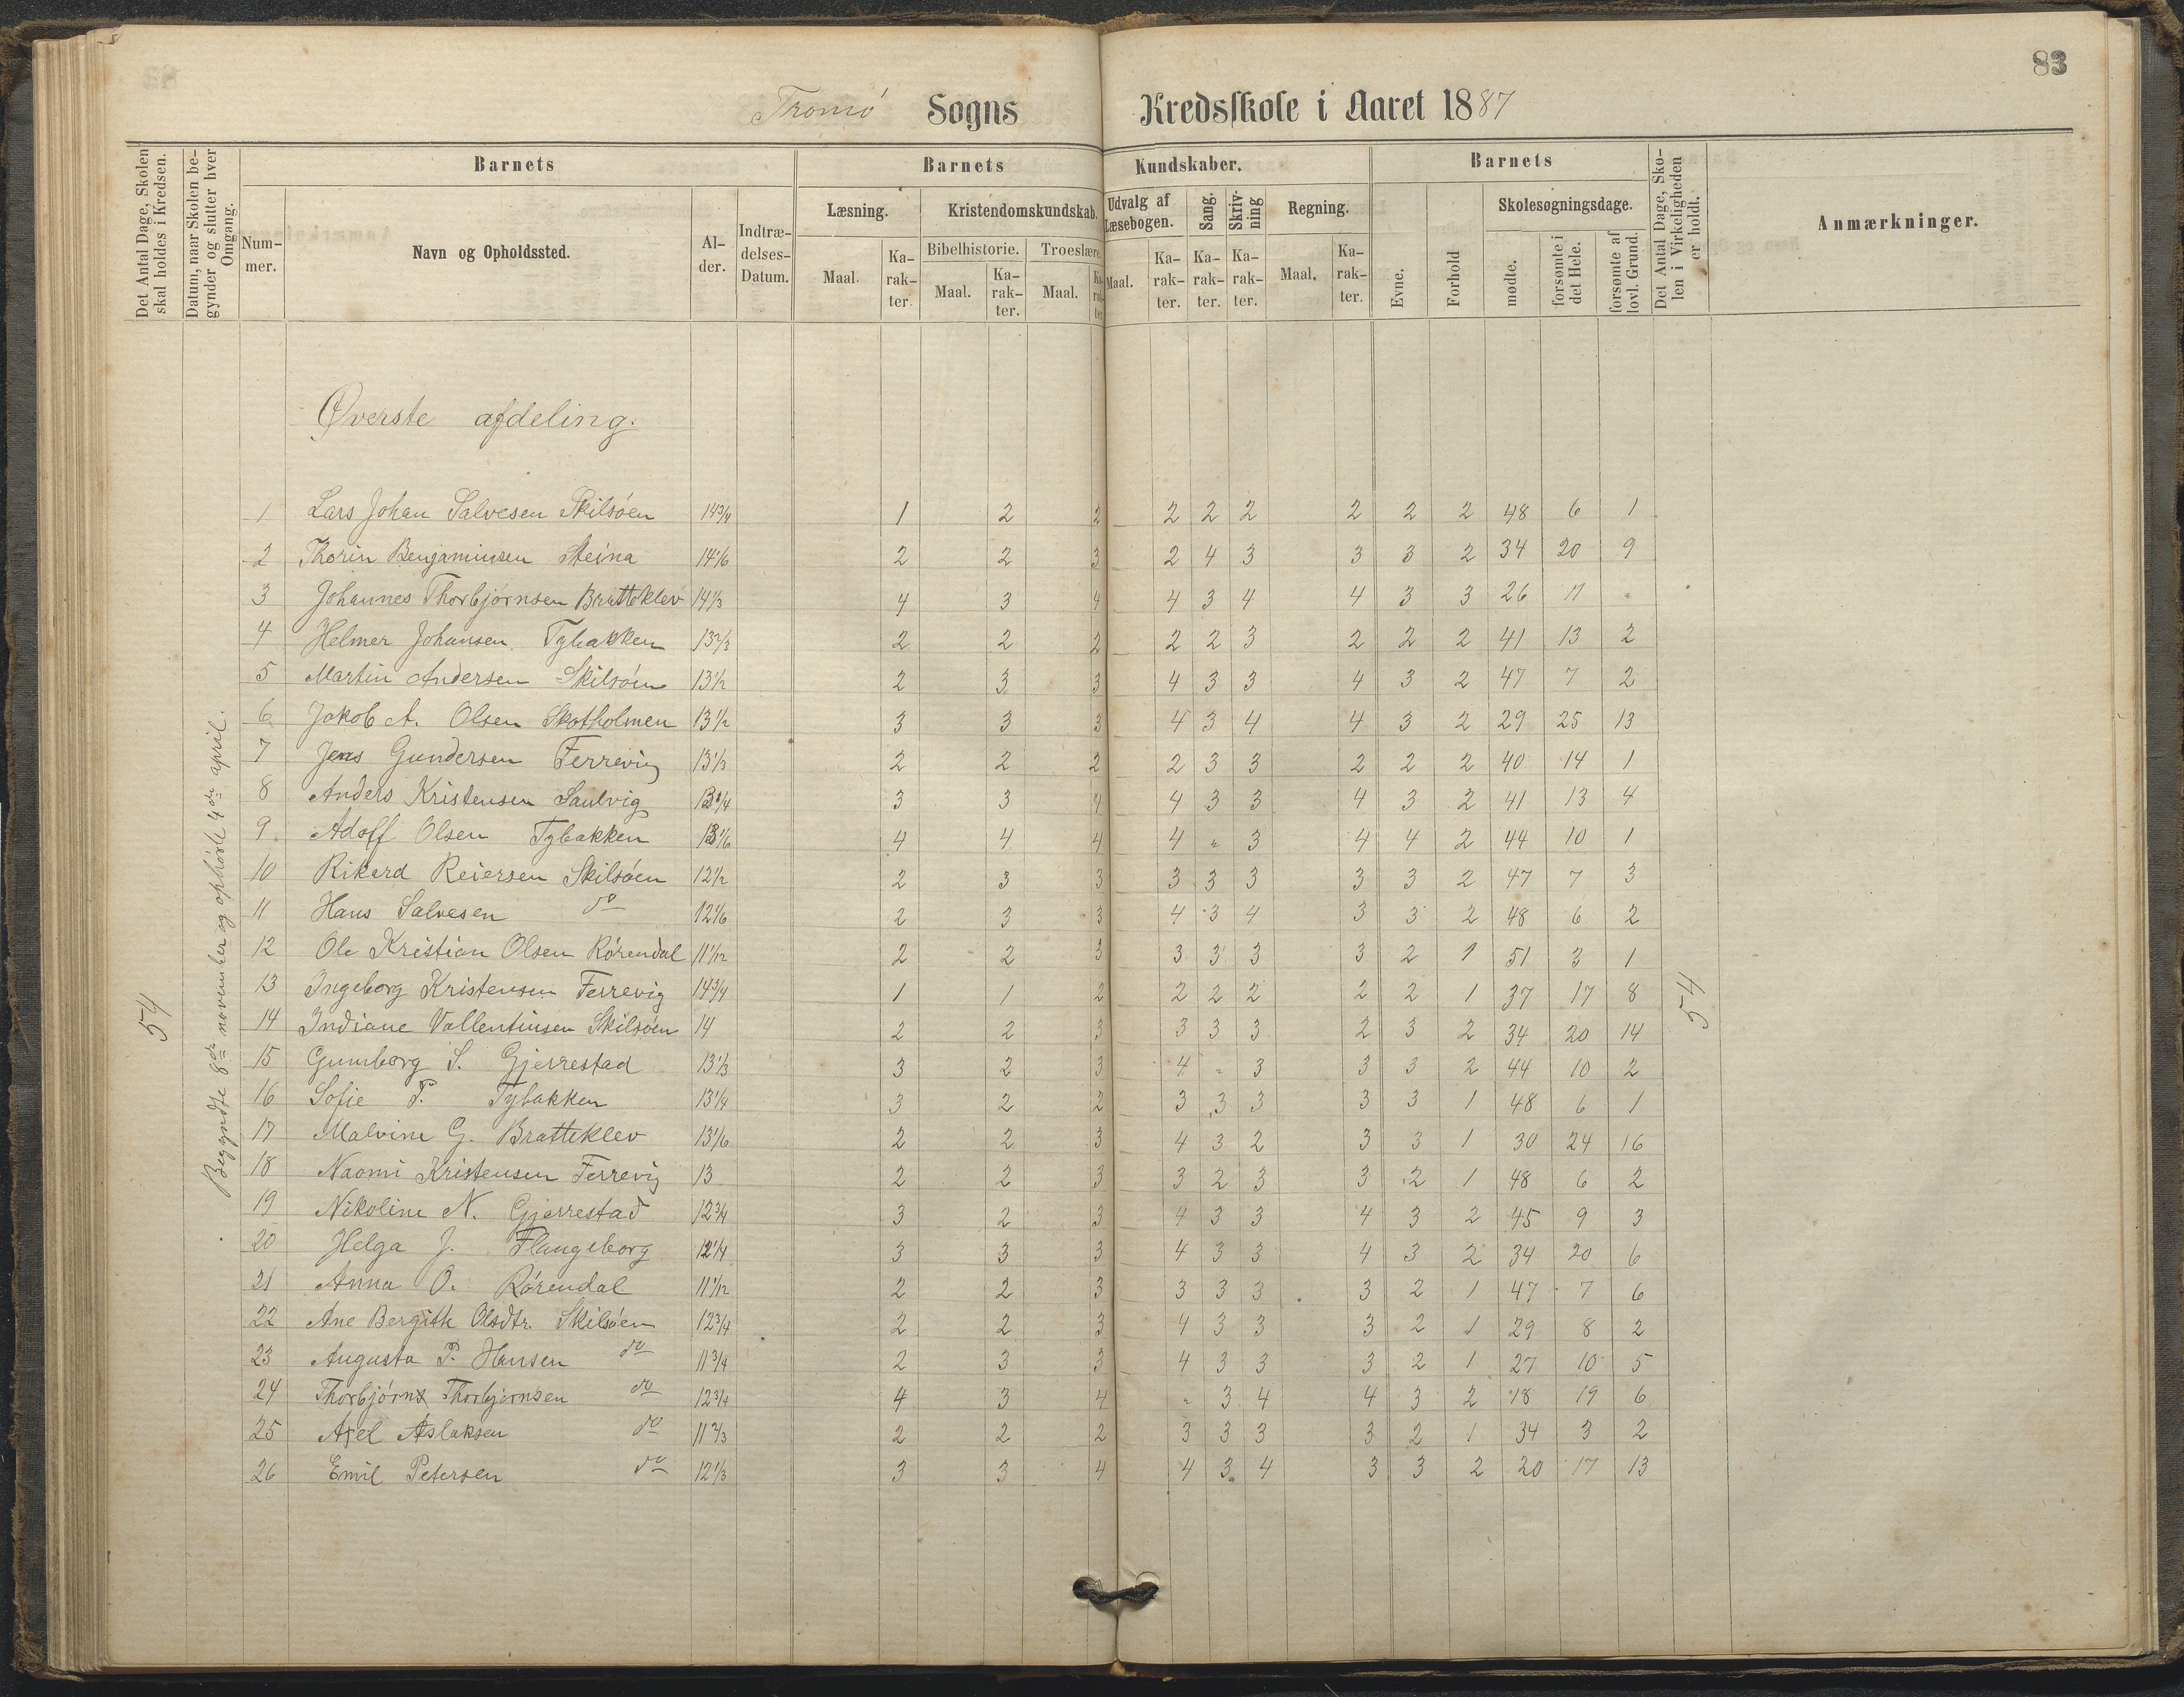 83
Tromø Sogns Kredsskole i Aaret 1887
Det Antal Dage, Skolen skal holdes i Kredsen.
Datum, naar Skolen begynder og slutter hver Omgang.
Barnets
Barnets Kundskaber.
Barnets
Det Antal Dage, Skolen i Virkeligheden er holdt.
Anmærkninger.
Nummer.
Navn og Opholdssted.
Alder.
Indtrædelses-Datum.
Læsning.
Kristendomskundskab.
Udvalg af Læsebogen.
Sang.
Skrivning
Regning.
Evne.
Forhold
Skolesøgningsdage.
Bibelhistorie.
Troeslære.
Maal.
Karakter.
Maal.
Karakter.
Maal.
Karakter.
Maal.
Karakter.
Karakter.
Karakter.
Maal.
Karakter.
mødte.
forsømte i det Hele.
forsømte af lovl. Grund.
Øverste afdeling.
54
Begyndte 8de november og ophørte 4de april.
1 Lars Johan Salvesen Skilsøen 14 3/4 1 2 2 2 2 2 2 2 2 48 6 1
2 Thorin Benjaminsen Steina 14 1/6 2 2 3 2 4 3 3 3 2 34 20 9
3 Johannes Thorbjørnsen Bratteklev 14 1/3 4 3 4 4 3 4 4 3 3 26 17 "
4 Helmer Johansen Tybakken 13 2/3 2 2 2 2 2 3 2 2 2 41 13 2
5 Martin Andersen Skilsøen 13 1/2 2 3 3 4 3 3 4 3 2 47 7 2
6 Jakob A. Olsen Skotholmen 13 1/2 3 3 3 4 3 4 4 3 2 29 25 13
7 Jens Gundersen Ferrevig 13 1/3 2 2 2 2 3 3 2 2 2 40 14 1
8 Anders Kristensen Saulvig 13 1/4 3 3 4 4 3 3 4 3 2 41 13 4
9 Adolf Olsen Tybakken 13 1/6 4 4 4 4 " 3 4 4 2 44 10 1
10 Rikard Reiersen Skilsøen 12 1/2 2 3 3 3 3 3 3 3 2 47 7 3
11 Hans Salvesen do 12 1/6 2 3 3 4 3 4 3 3 2 48 6 2
12 Ole Kristian Olsen Rørendal 11 1/12 2 2 3 3 3 3 3 2 1 51 3 1
13 Ingeborg Kristensen Ferrevig 14 3/4 1 1 2 2 2 2 2 2 1 37 17 8
14 Indiane Vallentinsen Skilsøen 14 2 2 3 3 3 3 2 3 2 34 20 14
15 Gunborg S. Gjerrestad 13 1/3 3 2 3 4 " 3 3 3 2 44 10 2
16 Sofie P. Tybakken 13 1/4 3 2 2 3 3 3 3 3 1 48 6 1
17 Malvine G. Bratteklev 13 1/6 2 2 3 4 3 2 3 3 1 30 24 16
18 Naomi Kristensen Ferrevig 13 2 2 3 3 2 3 3 2 1 48 6 2
19 Nikoline N. Gjerrestad 12 3/4 3 2 3 4 3 3 4 3 2 45 9 3
20 Helga J. Flangeborg 12 1/4 3 3 3 4 3 3 4 3 2 34 20 6
21 Anna O. Rørendal 11 1/12 2 2 3 3 3 3 3 2 1 47 7 6
22 Ane Bergith Olsdtr. Skilsøen 12 3/4 2 2 3 4 3 3 3 2 1 29 8 2
23 Augusta P. Hansen do 11 3/4 2 3 3 4 3 3 3 2 1 27 10 5
24 Thorbjørn Thorbjørnsen do 12 3/4 4 3 4 " 3 4 4 3 2 18 19 6
25 Axel Aslaksen do 11 2/3 2 2 2 3 3 3 3 2 1 34 3 2
26 Emil Petersen do 12 1/3 3 3 4 4 3 4 3 3 2 20 17 13
54